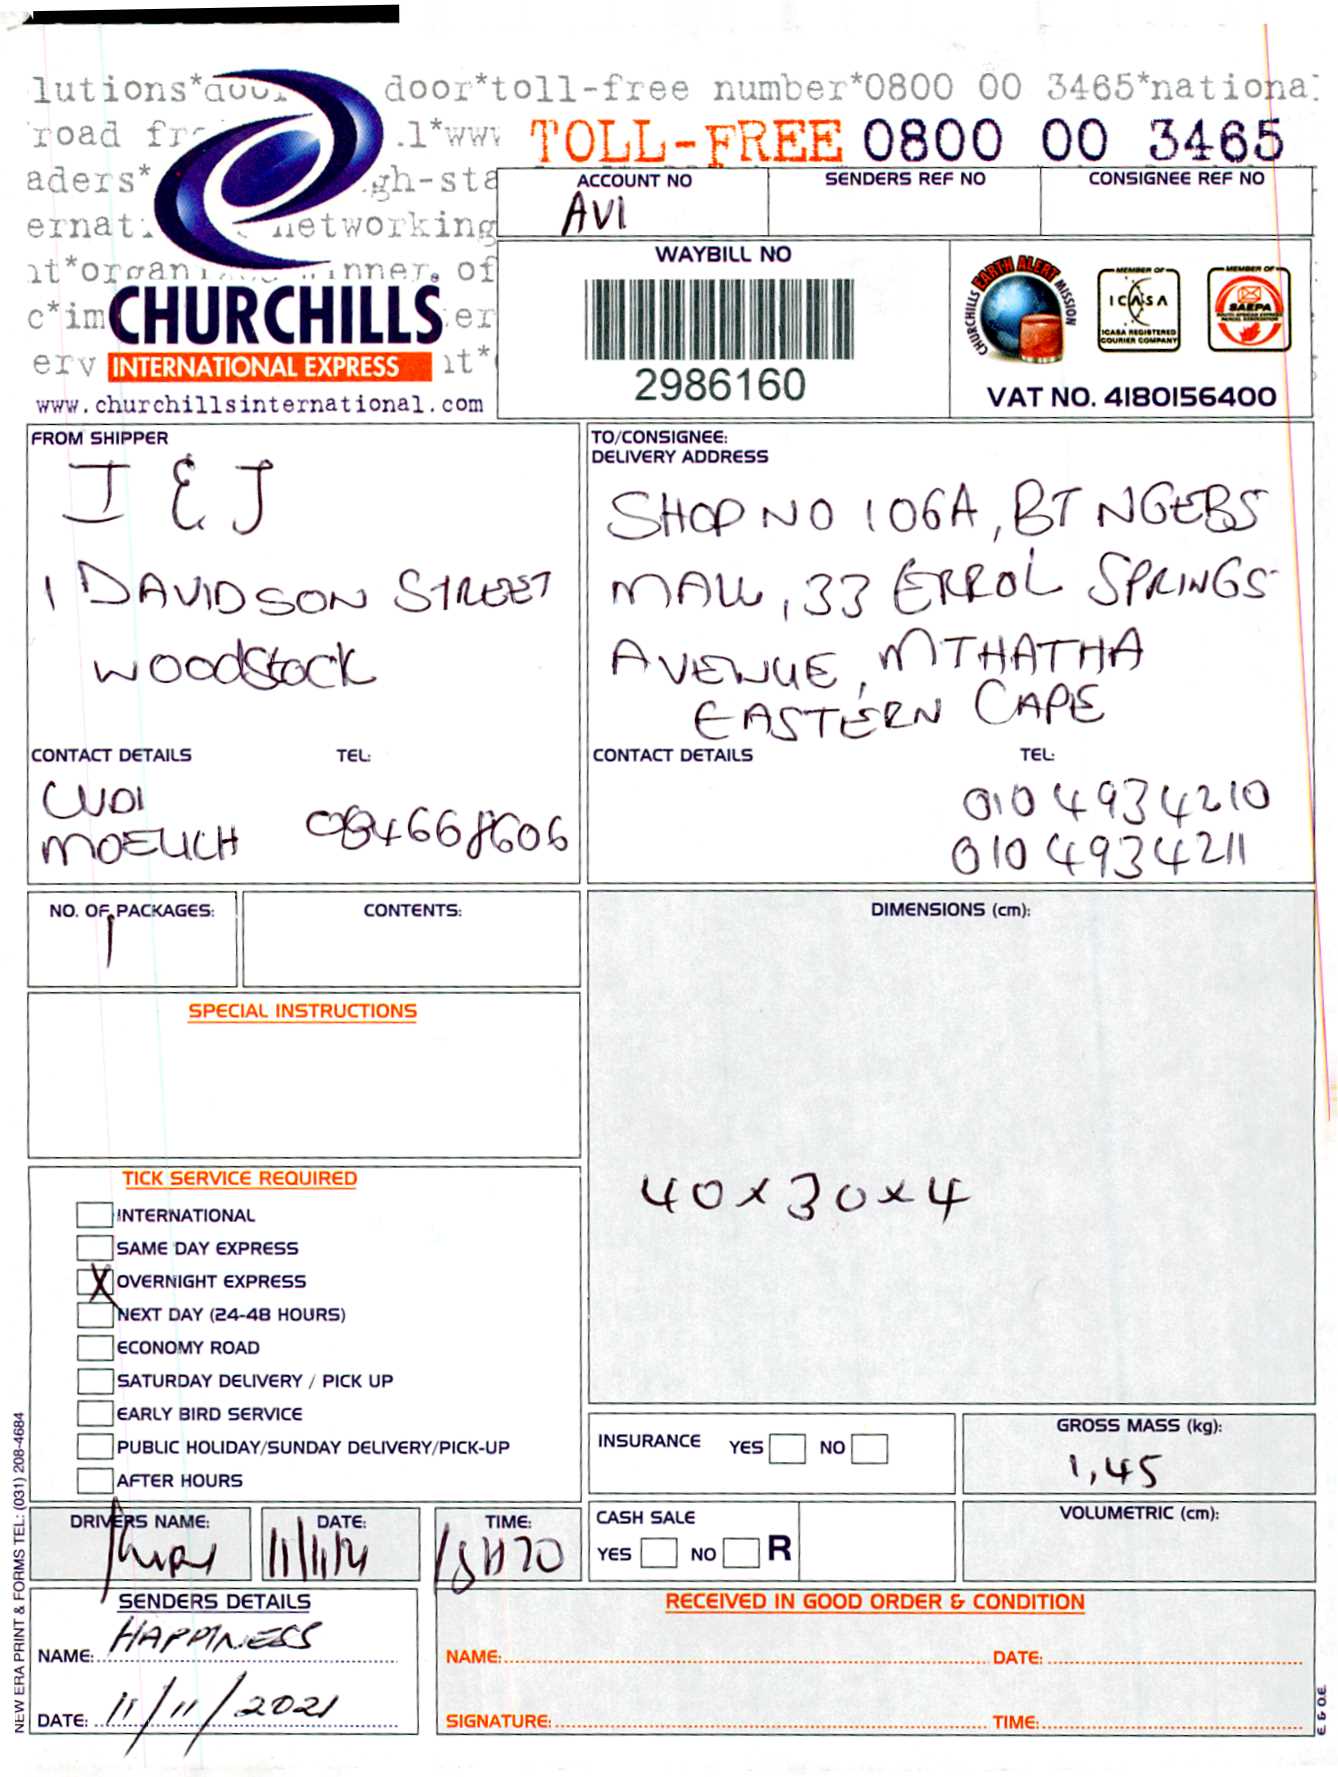 lutions*door door*toll-free number*0800 00 3465*nationa
road fr .l*www TOLL-FREE 0800 00 3465
aders* gh-sta
ernat networking
nt*organi inner, of
c*im er
erv nt*
CHURCHILLS
INTERNATIONAL EXPRESS
www.churchillsinternational.com
ACCOUNT NO
AVI
SENDERS REF NO
CONSIGNEE REF NO
WAYBILL NO
2986160
CHURCHILLS EARTH ALERT MISSION
MEMBER OF
ICASA
ICASA REGISTERED
COURIER COMPANY
MEMBER OF
SAEPA
SOUTH AFRICAN EXPRESS
PARCEL ASSOCIATION
VAT NO. 4180156400
FROM SHIPPER
I & J
1 DAVIDSON STREET
WOODSTOCK
CONTACT DETAILS
TEL:
MOELICH
084668606
TO/CONSIGNEE:
DELIVERY ADDRESS
SHOP NO 106A, BT NGEBS
MALL, 33 ERROL SPRINGS
AVENUE, MTHATHA
EASTERN CAPE
CONTACT DETAILS
TEL:
010 4934210
010 4934211
NO. OF PACKAGES:
1
CONTENTS:
DIMENSIONS (cm):
40 x 30 x 4
SPECIAL INSTRUCTIONS
TICK SERVICE REQUIRED
INTERNATIONAL
SAME DAY EXPRESS
X OVERNIGHT EXPRESS
NEXT DAY (24-48 HOURS)
ECONOMY ROAD
SATURDAY DELIVERY / PICK UP
EARLY BIRD SERVICE
PUBLIC HOLIDAY/SUNDAY DELIVERY/PICK-UP
AFTER HOURS
INSURANCE YES NO
GROSS MASS (kg):
1,45
DRIVERS NAME:
DATE:
11/11/21
TIME:
CASH SALE
YES NO R
VOLUMETRIC (cm):
SENDERS DETAILS
NAME: HAPPINESS
DATE: 11/11/2021
RECEIVED IN GOOD ORDER & CONDITION
NAME: DATE:
SIGNATURE: TIME:
NEW ERA PRINT & FORMS TEL: (031) 208-4684
E. & O.E.